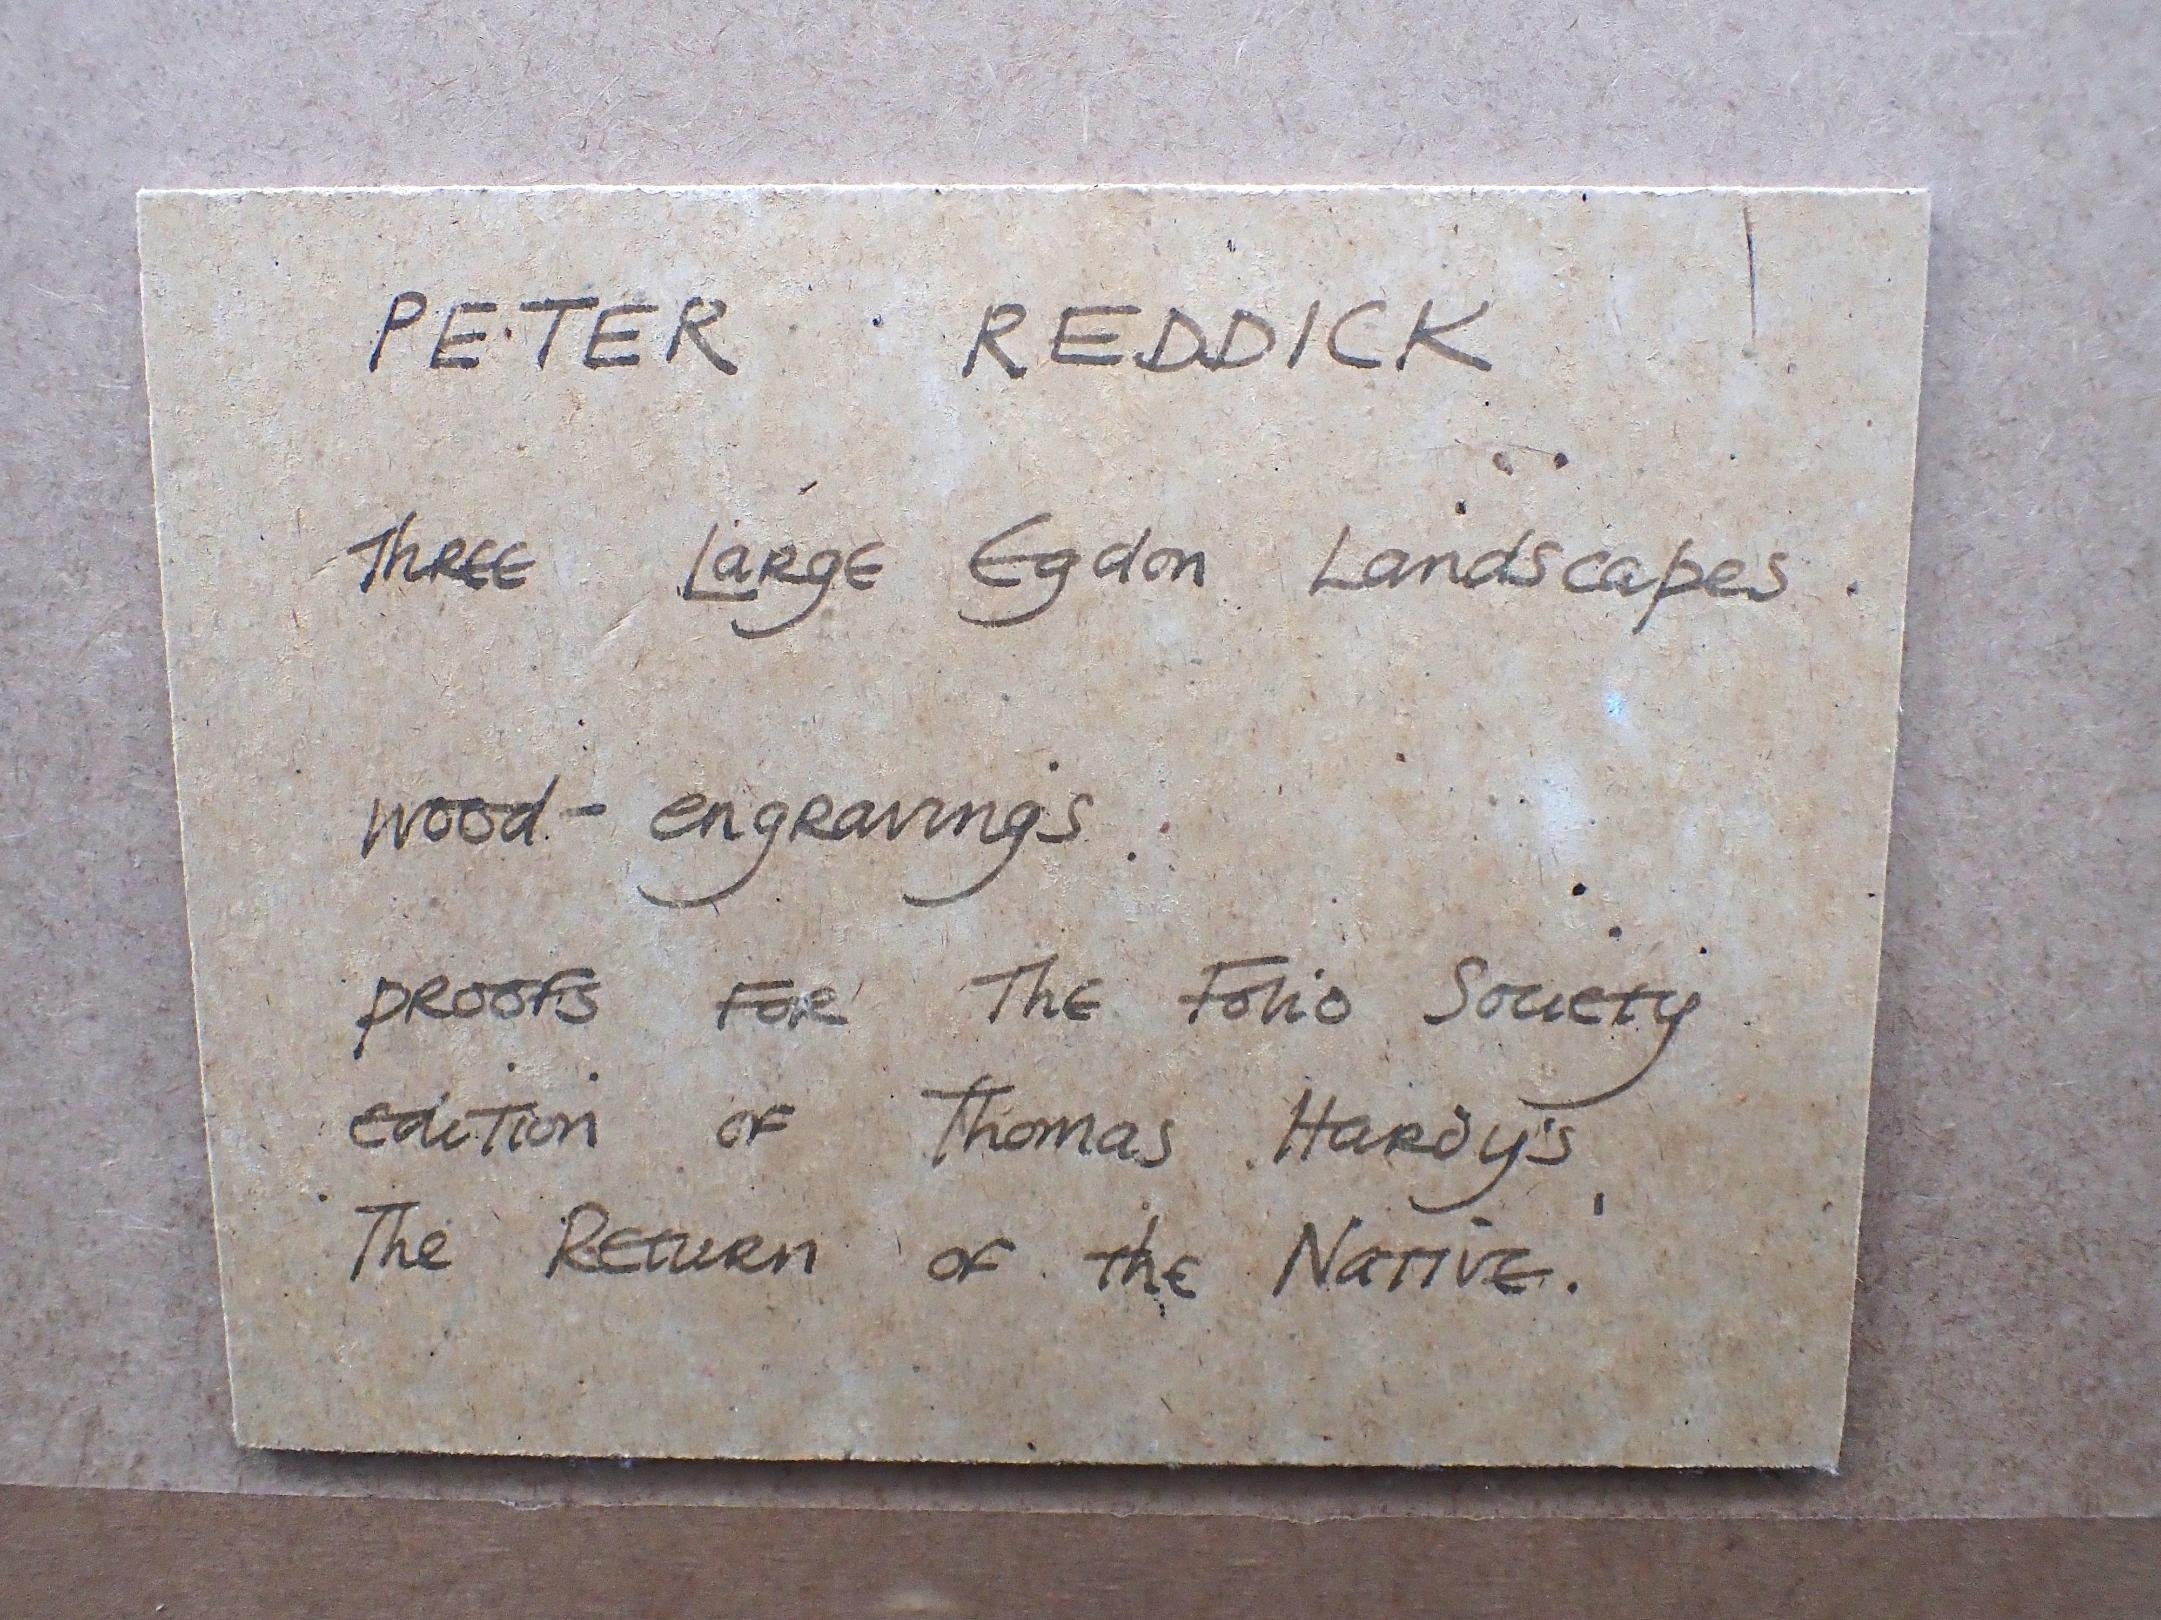 PETER REDDICK
Three Large Egdon Landscapes.
wood-engravings.
proofs for The Folio Society
edition of Thomas Hardy's
The Return of the Native.'